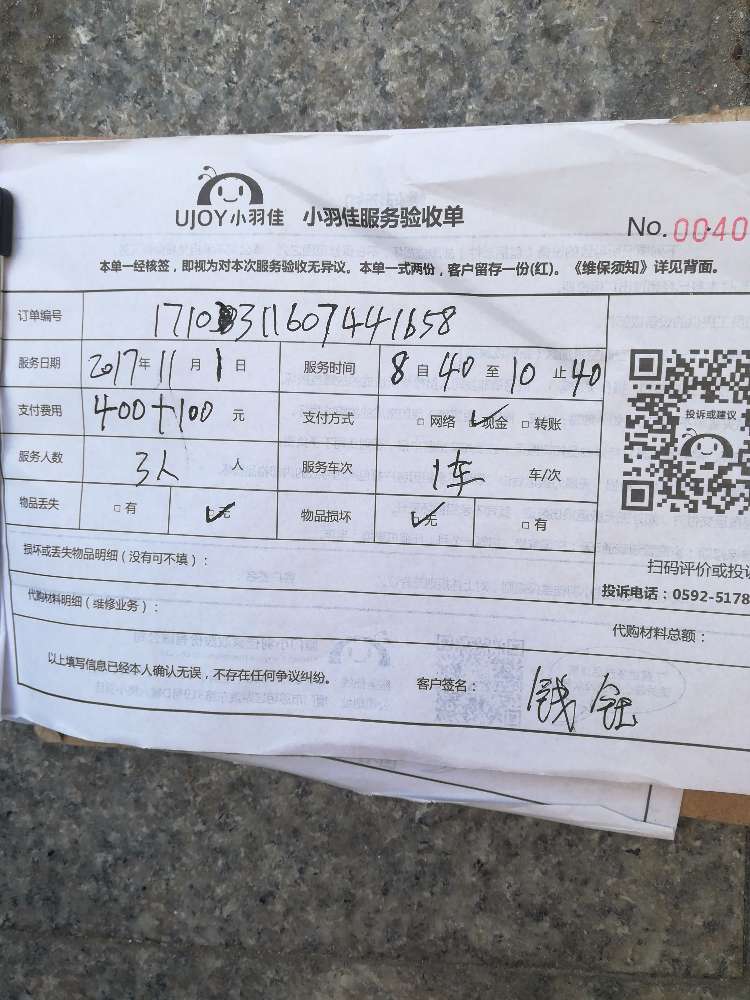 UJOY小羽佳 小羽佳服务验收单
No. 0040
本单一经核签，即视为对本次服务验收无异议。本单一式两份，客户留存一份(红)。《维保须知》详见背面。
订单编号 1710311607441658
服务日期 2017年 11月 1日 服务时间 8自40至10止40
支付费用 400+100 元 支付方式 □网络 ✓现金 □转账
服务人数 3人 人 服务车次 1车 车/次
物品丢失 □有 ✓无 物品损坏 ✓无 □有
投诉或建议
损坏或丢失物品明细（没有可不填）：
扫码评价或投诉
投诉电话：0592-5178
代购材料明细（维修业务）：
代购材料总额：
以上填写信息已经本人确认无误，不存在任何争议纠纷。 客户签名： 钱